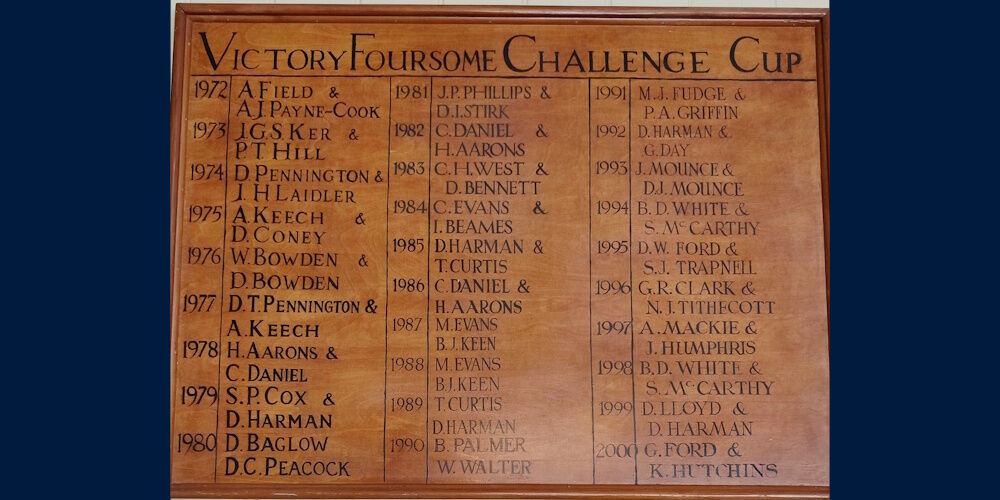 Victory Foursome Challenge Cup
1972 A Field &
A.J. Payne-Cook
1973 J.G.S Ker &
P.T. Hill
1974 D. Pennington &
J. H Laidler
1975 A. Keech &
D. Coney
1976 W. Bowden &
D. Bowden
1977 D.T. Pennington &
A. Keech
1978 H. Aarons &
C. Daniel
1979 S.P. Cox &
D. Harman
1980 D. Baglow
D.C. Peacock
1981 J.P. PHILLIPS &
D.I. STIRK
1982 C. DANIEL &
H. AARONS
1983 C.H. WEST &
D. BENNETT
1984 C. EVANS &
I. BEAMES
1985 D. HARMAN &
T. CURTIS
1986 C. DANIEL &
H. AARONS
1987 M. EVANS
B.J. KEEN
1988 M. EVANS
B.J. KEEN
1989 T. CURTIS
D. HARMAN
1990 B. PALMER
W. WALTER
1991 M.J. FUDGE &
P.A. GRIFFIN
1992 D. HARMAN &
G. DAY
1993 J. MOUNCE &
D.J. MOUNCE
1994 B.D. WHITE &
S. McCARTHY
1995 D.W. FORD &
S.J. TRAPNELL
1996 G.R. CLARK &
N.J. TITHECOTT
1997 A. MACKIE &
J. HUMPHRIS
1998 B.D. WHITE &
S. McCARTHY
1999 D. LLOYD &
D. HARMAN
2000 G. FORD &
K. HUTCHINS